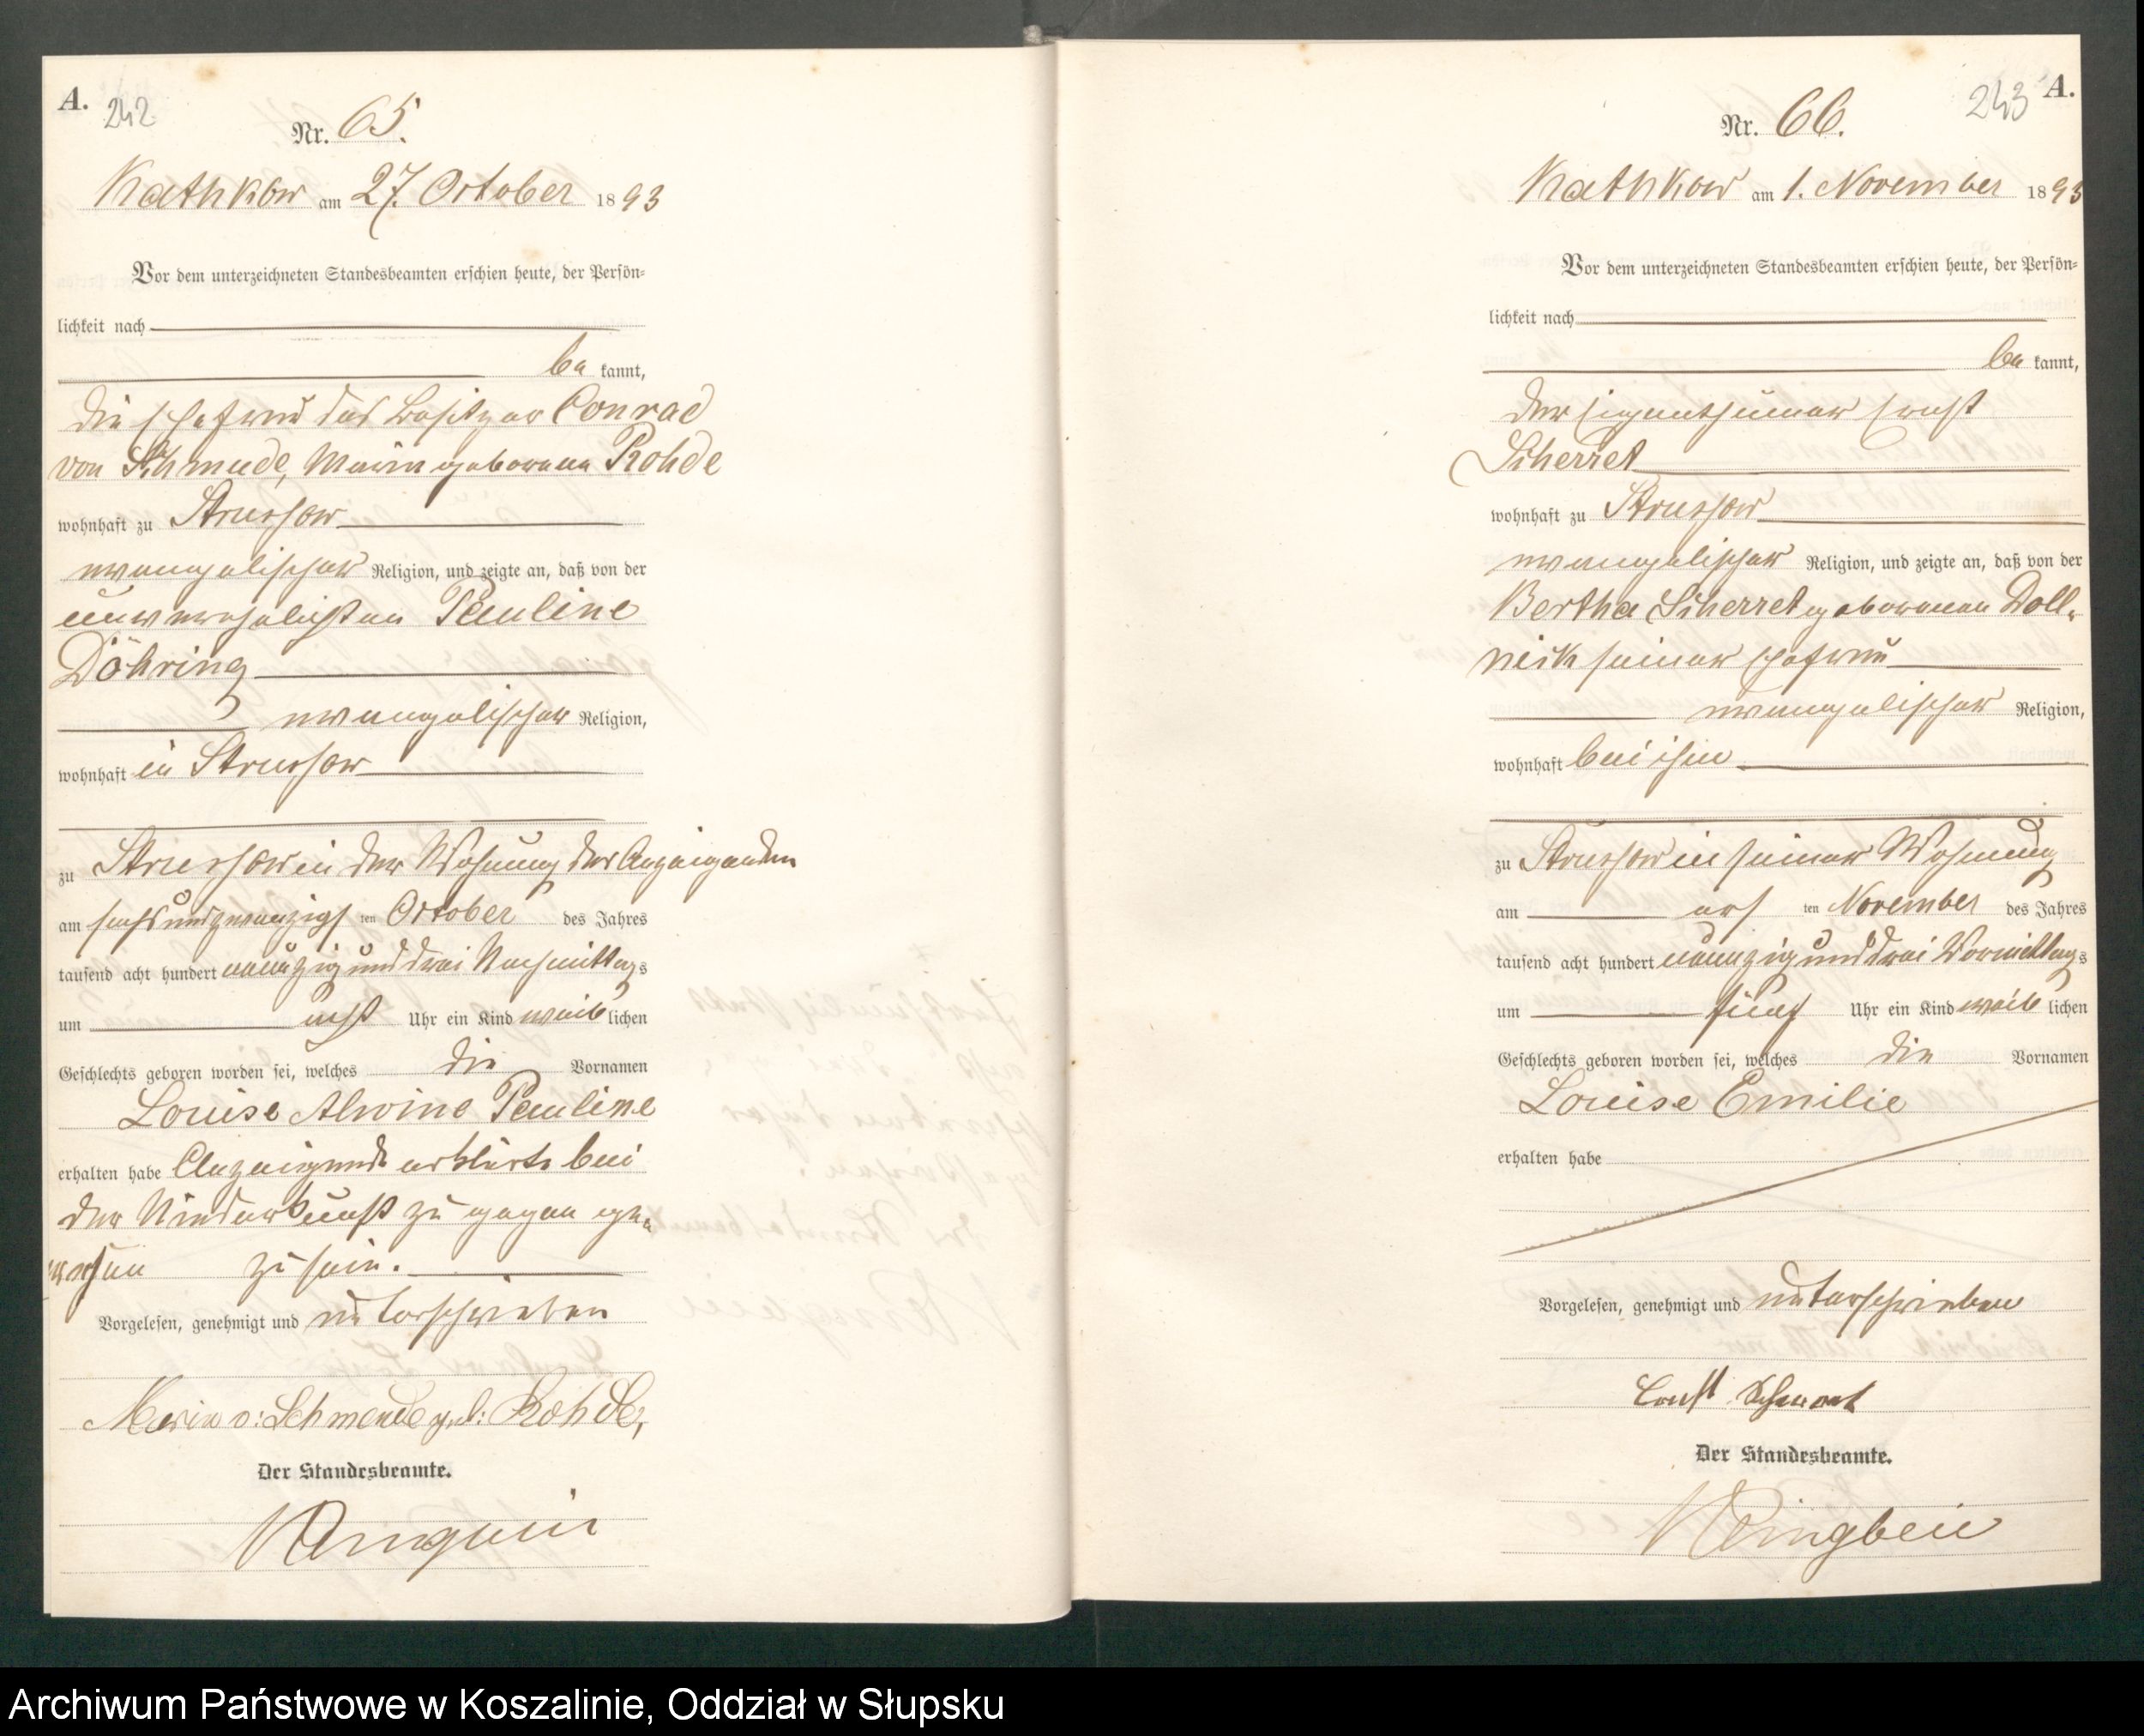 A.
242
Nr. 65.
Kathkow am 27. October 1893
Vor dem unterzeichneten Standesbeamten erschien heute, der Persön-
lichkeit nach
be kannt,
die Ehefrau des Besitzer Conrad
von Schmude, Marie geborene Rohde
wohnhaft zu Strussow
evangelischer Religion, und zeigte an, daß von der
unverehelichten Pauline
Döhring
evangelischer Religion,
wohnhaft in Strussow
zu Strussow in der Wohnung der Anzeigenden
am sechsundzwanzigs ten October des Jahres
tausend acht hundert neunzig und drei Nachmittags
um acht Uhr ein Kind weib lichen
Geschlechts geboren worden sei, welches die Vornamen
Louise Alwine Pauline
erhalten habe Anzeigende erklärte bei
der Niederkunft zugegen ge-
wesen zu sein.
Vorgelesen, genehmigt und unterschrieben
Marie v: Schmude geb: Rohde,
Der Standesbeamte.
243
A.
Nr. 66.
Kathkow am 1. November 1893
Vor dem unterzeichneten Standesbeamten erschien heute, der Persön-
lichkeit nach
be kannt,
der Eigenthümer Ernst
Scherret
wohnhaft zu Strussow
evangelischer Religion, und zeigte an, daß von der
Bertha Scherret geborenen Doll-
neck seiner Ehefrau
evangelischer Religion,
wohnhaft bei ihm
zu Strussow in seiner Wohnung
am ers ten November des Jahres
tausend acht hundert neunzig und drei Vormittags
um fünf Uhr ein Kind weib lichen
Geschlechts geboren worden sei, welches die Vornamen
Louise Emilie
erhalten habe
Vorgelesen, genehmigt und unterschrieben
Ernst
Der Standesbeamte.
Archiwum Państwowe w Koszalinie, Oddział w Słupsku